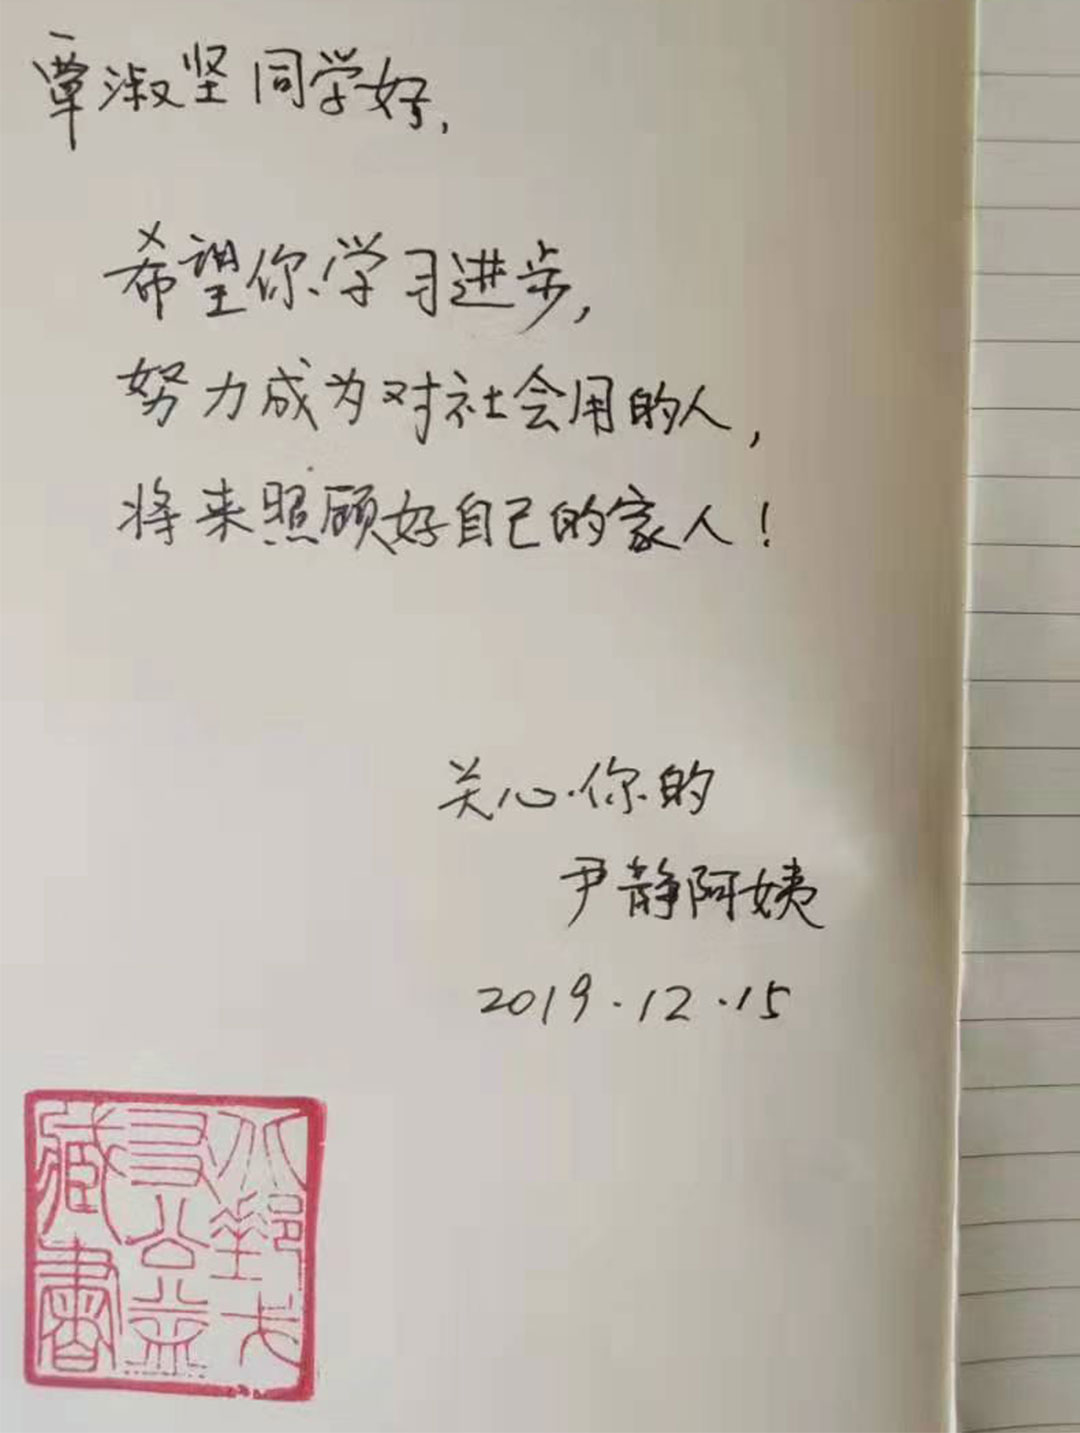 覃淑坚同学好,
希望你学习进步,
努力成为对社会用的人,
将来照顾好自己的家人!
关心你的
尹静阿姨
2019.12.15
八郵戈
友公益
藏書